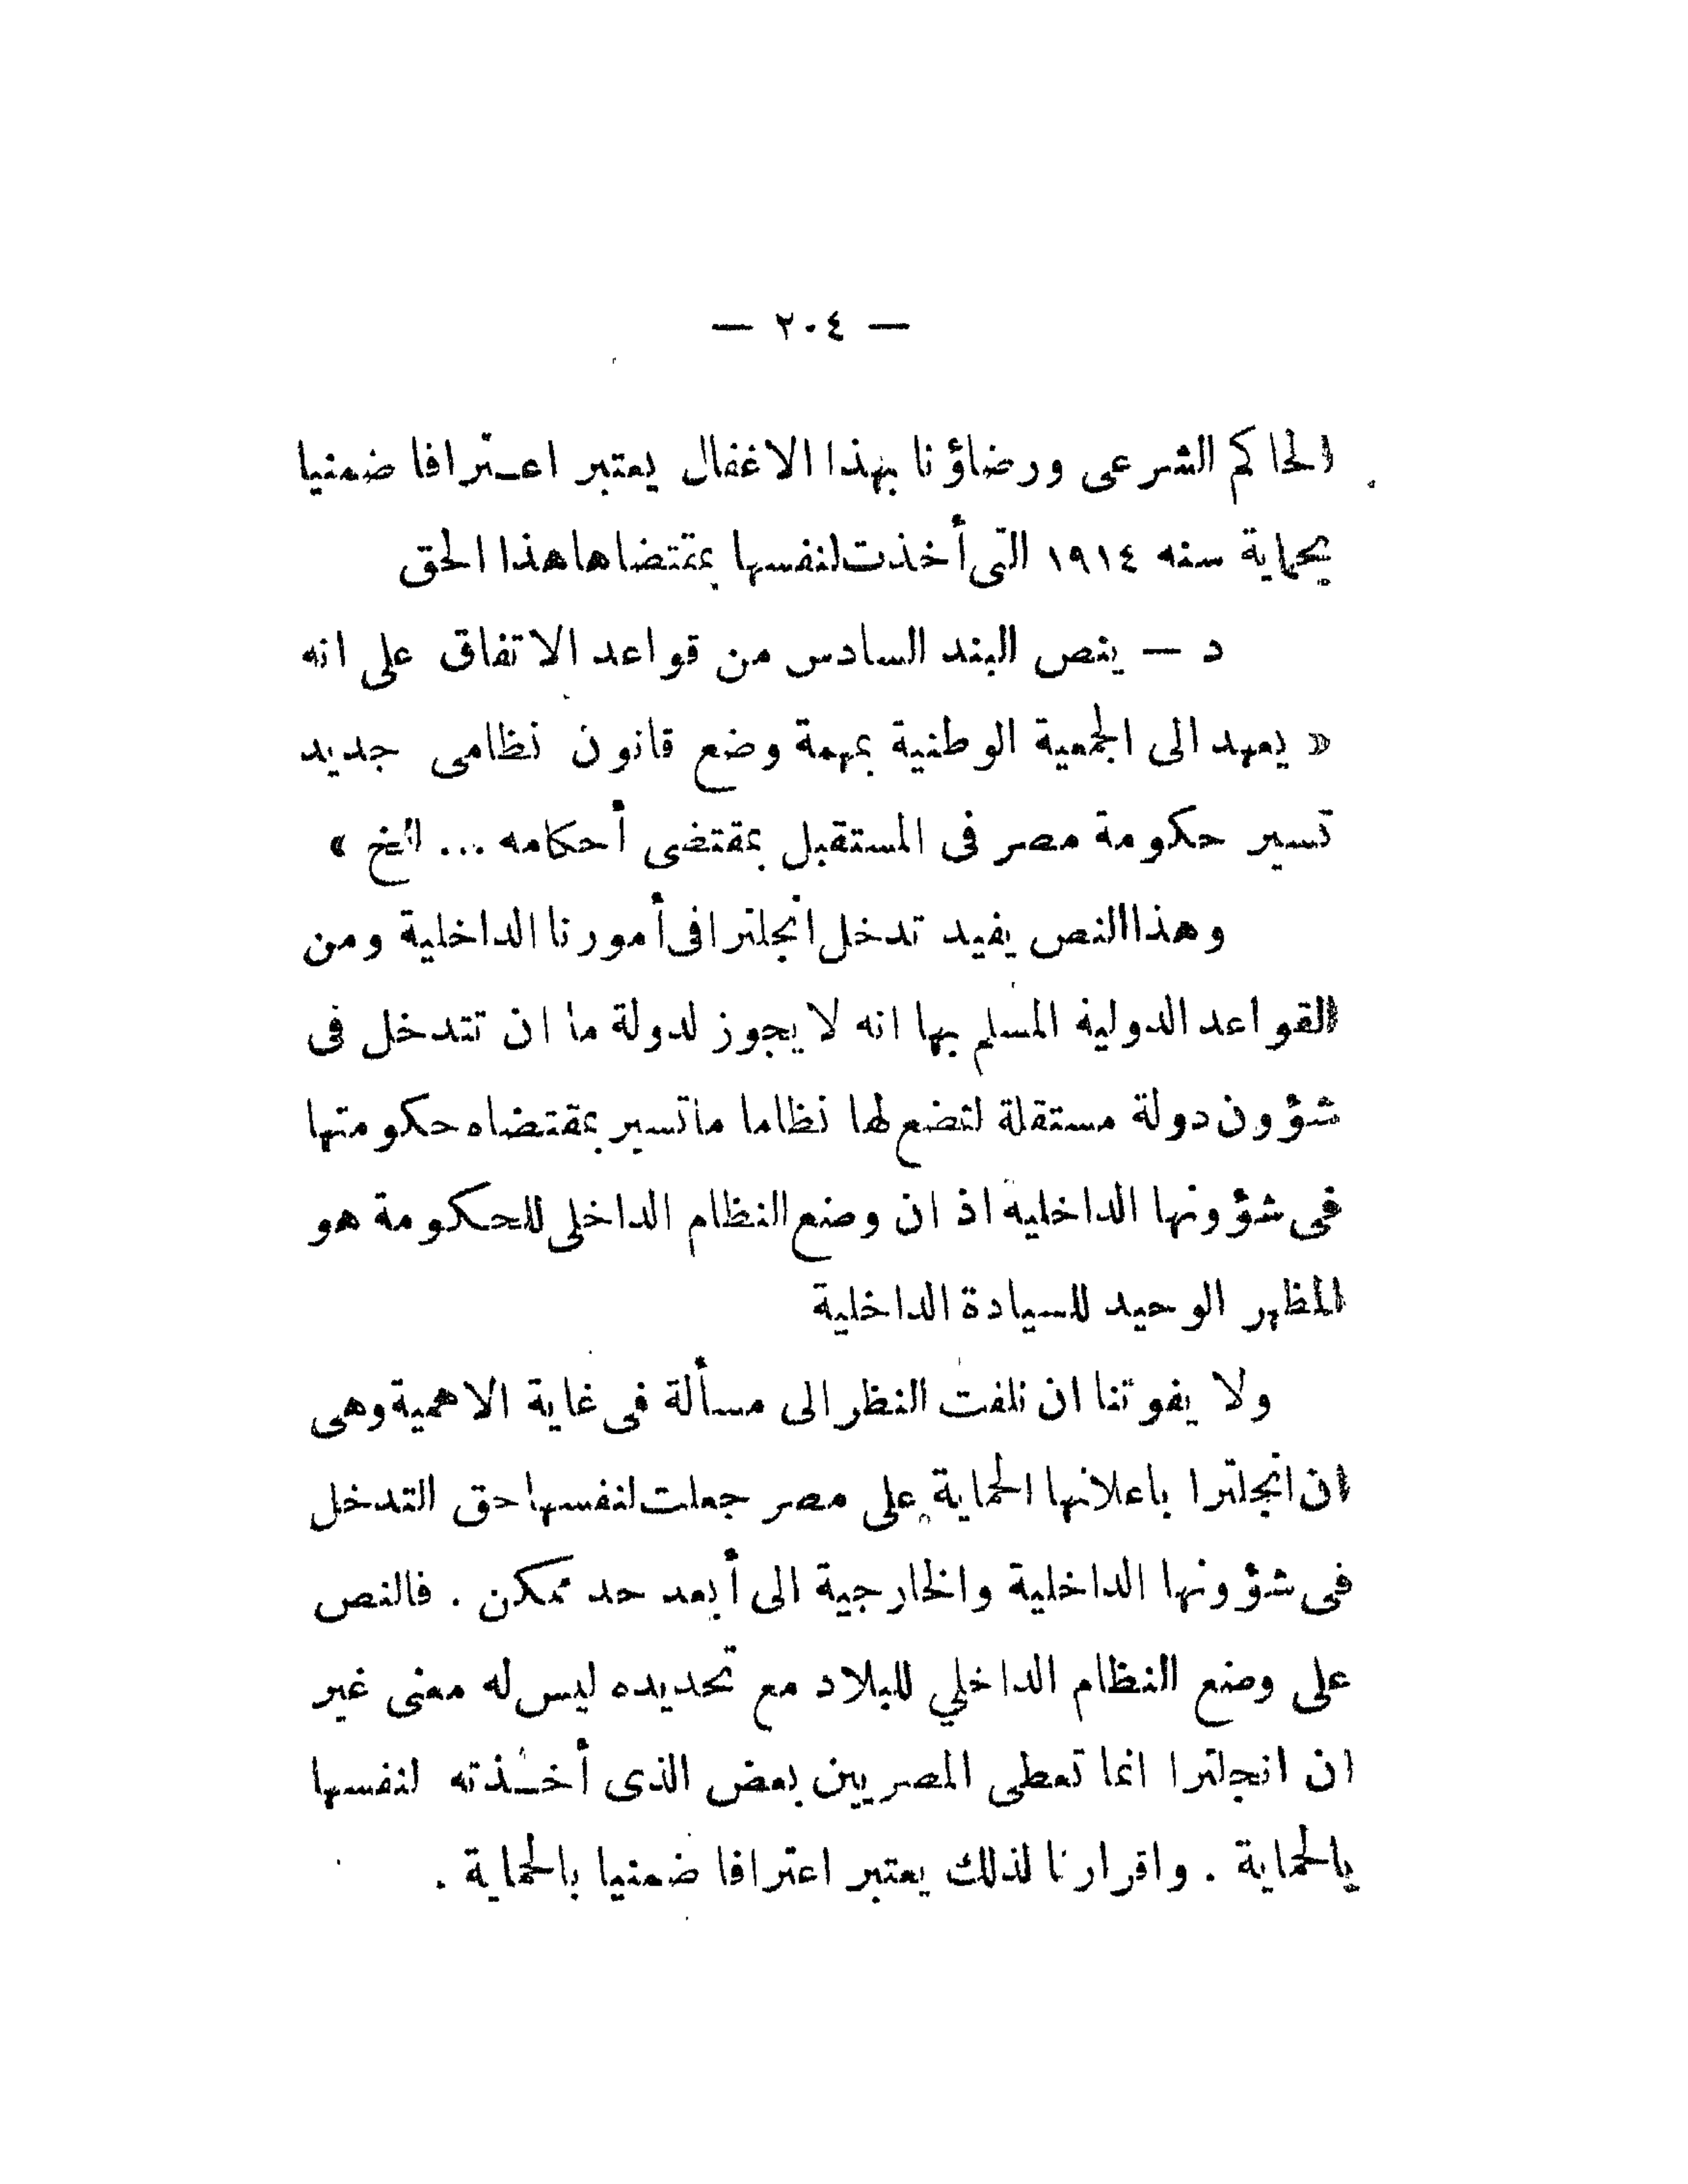 — ٢٠٤ —
الحاكم الشرعى ورضاؤنا بهذا الاغفال يعتبر اعترافا ضمنيا
بحماية سنه ١٩١٤ التى أخذت لنفسها بمقتضاها هذا الحق
د — ينص البند السادس من قواعد الاتفاق على انه
« يعهد الى الجمعية الوطنية بمهمة وضع قانون نظامى جديد
تسير حكومة مصر فى المستقبل بمقتضى أحكامه ... الخ »
وهذا النص يفيد تدخل انجلترا فى أمورنا الداخلية ومن
القواعد الدولية المسلم بها انه لا يجوز لدولة ما ان تتدخل فى
شؤون دولة مستقلة لتضع لها نظاما ما تسير بمقتضاه حكومتها
فى شؤونها الداخلية اذ ان وضع النظام الداخلى للحكومة هو
المظهر الوحيد للسيادة الداخلية
ولا يفوتنا ان نلفت النظر الى مسألة فى غاية الاهمية وهى
ان انجلترا باعلانها الحماية على مصر جعلت لنفسها حق التدخل
فى شؤونها الداخلية والخارجية الى أبعد حد ممكن . فالنص
على وضع النظام الداخلي للبلاد مع تحديده ليس له معنى غير
ان انجلترا انما تعطى المصريين بعض الذى أخذته لنفسها
بالحماية . واقرارنا لذلك يعتبر اعترافا ضمنيا بالحماية .